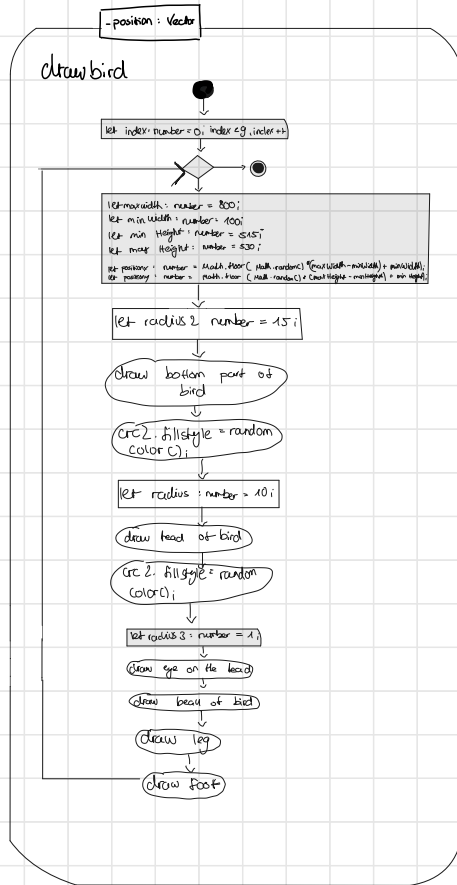 -position: Vector
drawbird
let index: number = 0; index < 9, index ++
let maxwidth: number = 800;
let min width: number = 100;
let min Height: number = 515;
let max Height: number = 530;
let positionx: number = Math.floor(Math.random() *(maxWidth-minWidth) + minWidth);
let positiony: number = Math.floor (Math.random() * (maxHeight-minHeight) + min Height);
let radius2 number = 15;
draw bottom part of
bird
crc2.fillstyle = random
color();
let radius : number = 10;
draw head of bird
crc 2. fillstyle = random
color();
let radius3: number = 1;
draw eye on the head
draw beak of bird
draw leg
draw foot